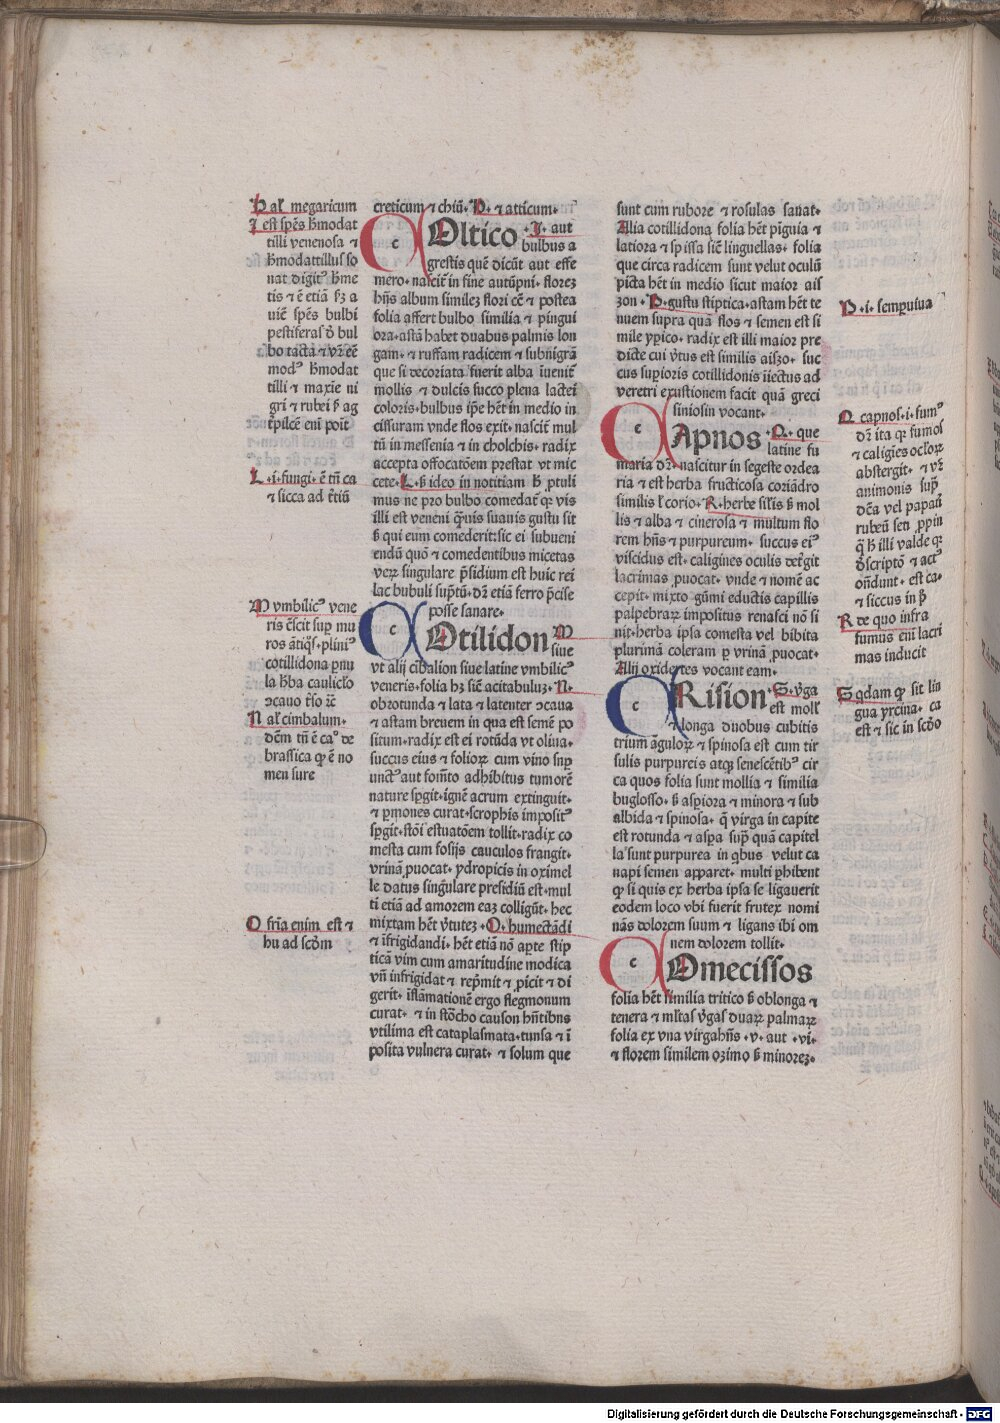 Pal megaricum
I est spēs h̄modat
tilli venenosa ⁊
h̄modattillus so
nat digitꝰ h̄me
tis ⁊ ē etiā s̄ꝫ a
uiē spēs bulbi
pestiferas ð bul
bo tacta ⁊ vr̄ eē
modꝰ h̄modat
tilli ⁊ maxīe ni
gri ⁊ rubei ƀ ag
eni poīt
L·i·fungi·ē tn̄ ca
⁊ sicca ad
M vmbilicꝰ vene
ris ēscit suꝑ mu
ros
cotillidona ꝑnu
la h̄ba cauliclo
ɔcauo
N al cimbalum·
dēm tn̄ ē caꝰ de
brassica ꝙ ē no
men sure
O fr̄ia enim est ⁊
hu ad scðm
creticum ⁊ chiū·P·⁊ atticum·
COltico·I·aut
bulbus a
grestis quē dicūt aut effe
mero·nascit̄ in fine autūpni·florez
hn̄s album similez flori cē ⁊ postea
folia affert bulbo similia ⁊ pingui
ora·astā habet duabus palmis lon
gam·⁊ ruffam radicem ⁊ subnigrā
que si decoriata fuerit alba īuenit̄
mollis ⁊ dulcis succo plena lactei
coloris·bulbus ip̄e hēt in medio in
cissuram vnde flos exit·nascit̄ mul
tū in messenia ⁊ in cholchis·radix
accepta offocatōem prestat vt mic
cete·L·ƀ ideo in notitiam ƀ ꝓtuli
mus ne pro bulbo comedat̄ ꝙ vis
illi est veneni q̄uis suauis gustu sit
ƀ qui eum comederit:sic ei subueni
endū quō ⁊ comedentibus micetas
veꝝ singulare p̄sidium est huic rei
lac bubuli suꝑtū·dr̄ etiā ferro p̄cise
posse sanare·
COtilidon M
siue
vt alij cībalion siue latine vmbilicꝰ
veneris·folia hꝫ siē acitabuluz·N·
obrotunda ⁊ lata ⁊ latenter ɔcaua
⁊ astam breuem in qua est semē po
situm·radix est ei rotūda vt oliua·
succus eius ⁊ folioꝝ cum vino suꝑ
unctꝰ aut fom̄to adhibitus tumorē
nature sp̄git·ignē acrum extinguit·
⁊ ꝑniones curat·scrophis impositꝰ
sp̄git·stōi estuatōem tollit·radix co
mesta cum fosijs cauculos frangit·
vrinā ꝓuocat·ydropicis in oximel
le datus singulare presidiū est·mul
ti etiā ad amorem eaꝫ colligūt·hec
mixtam hēt v̄tutez·O·humectādi
⁊ īfrigidandi·hēt etiā nō aꝑte stip
ticā vim cum amaritudine modica
vn̄ infrigidat ⁊ rep̄mit ⁊ ꝓicit ⁊ di
gerit·īflāmationē ergo flegmonum
curat·⁊ in stōcho causon hn̄tibus
vtilima est cataplasmata·tunsa ⁊ ī
posita vulnera curat·⁊ solum que
sunt cum rubore ⁊ rosulas sanat·
Alia cotillidona folia hēt pīguia ⁊
latiora ⁊ spissa siē linguellas·folia
que circa radicem sunt velut oculū
picta hēt in medio sicut maior ais
zon·P·gustu stiptica·astam hēt te
nuem supra quā flos ⁊ semen est si
mile yꝑico·radix est illi maior pre
dicte cui v̄tus est similis aiszo·suc
cus suꝑioris cotillidonis iiectus ad
veretri exustionem facit quā greci
siniosin vocant·
CApnos·Q·que
latine fu
maria dr̄·nascitur in segeste ordea
ria ⁊ est herba fructicosa coriādro
similis l̄ corio·R·herbe sil̄is ƀ mol
lis ⁊ alba ⁊ cinerosa ⁊ multum flo
rem hn̄s ⁊ purpureum·succus eiꝰ
viscidus est·caligines oculis det̄git
lacrimas ꝓuocat·vnde ⁊ nomē ac
cepit·mixto gūmi eductis capillis
palpebraꝝ impositus renasci nō si
nit·herba ipsa comesta vel bibita
plurimā coleram ꝑ vrinā ꝓuocat·
Alij oxidertes vocant eam·
CRision·S·v̄ga
est moll̄
⁊ longa duobus cubitis
trium āguloꝝ ⁊ spinosa est cum tir
sulis purpureis atqꝫ senescētibꝰ cir
ca quos folia sunt mollia ⁊ similia
buglosso·ƀ aspiora ⁊ minora ⁊ sub
albida ⁊ spinosa·q̄ virga in capite
est rotunda ⁊ aspa suꝑ quā capitel
la sunt purpurea in qbus velut ca
napi semen apparet·multi ꝑhibent
ꝙ si quis ex herba ipsa se ligauerit
eodem loco vbi fuerit frutex nomi
nās dolorem suum ⁊ ligans ibi om
nem dolorem tollit·
COmecissos
folia hēt similia tritico ƀ oblonga ⁊
tenera ⁊ ml̄tas v̄gas duaꝝ palmaꝝ
folia ex vna virgahn̄s·v·aut·vi·
⁊ florem similem ozimo ƀ minorez·
P·i·semꝑuiua
Q capnos·i·fumꝰ
dr̄ ita ꝙ fumos
⁊ caligīes ocl̄oꝝ
abstergit·⁊ vr̄
animonis suꝑ
dēa vel papau̅
rubeū seu ꝓpin
q̄ ƀ illi valde ꝙ
ðscriptō ⁊ actꝰ
on̄dunt·est ca·
⁊ siccus in ƀ
R de quo infra
fumus eni lacri
mas inducit
S qdam ꝙ sit lin
gua yrcina·ca
est ⁊ sic in scðo
Digitalisierung gefördert durch die Deutsche Forschungsgemeinschaft - DFG